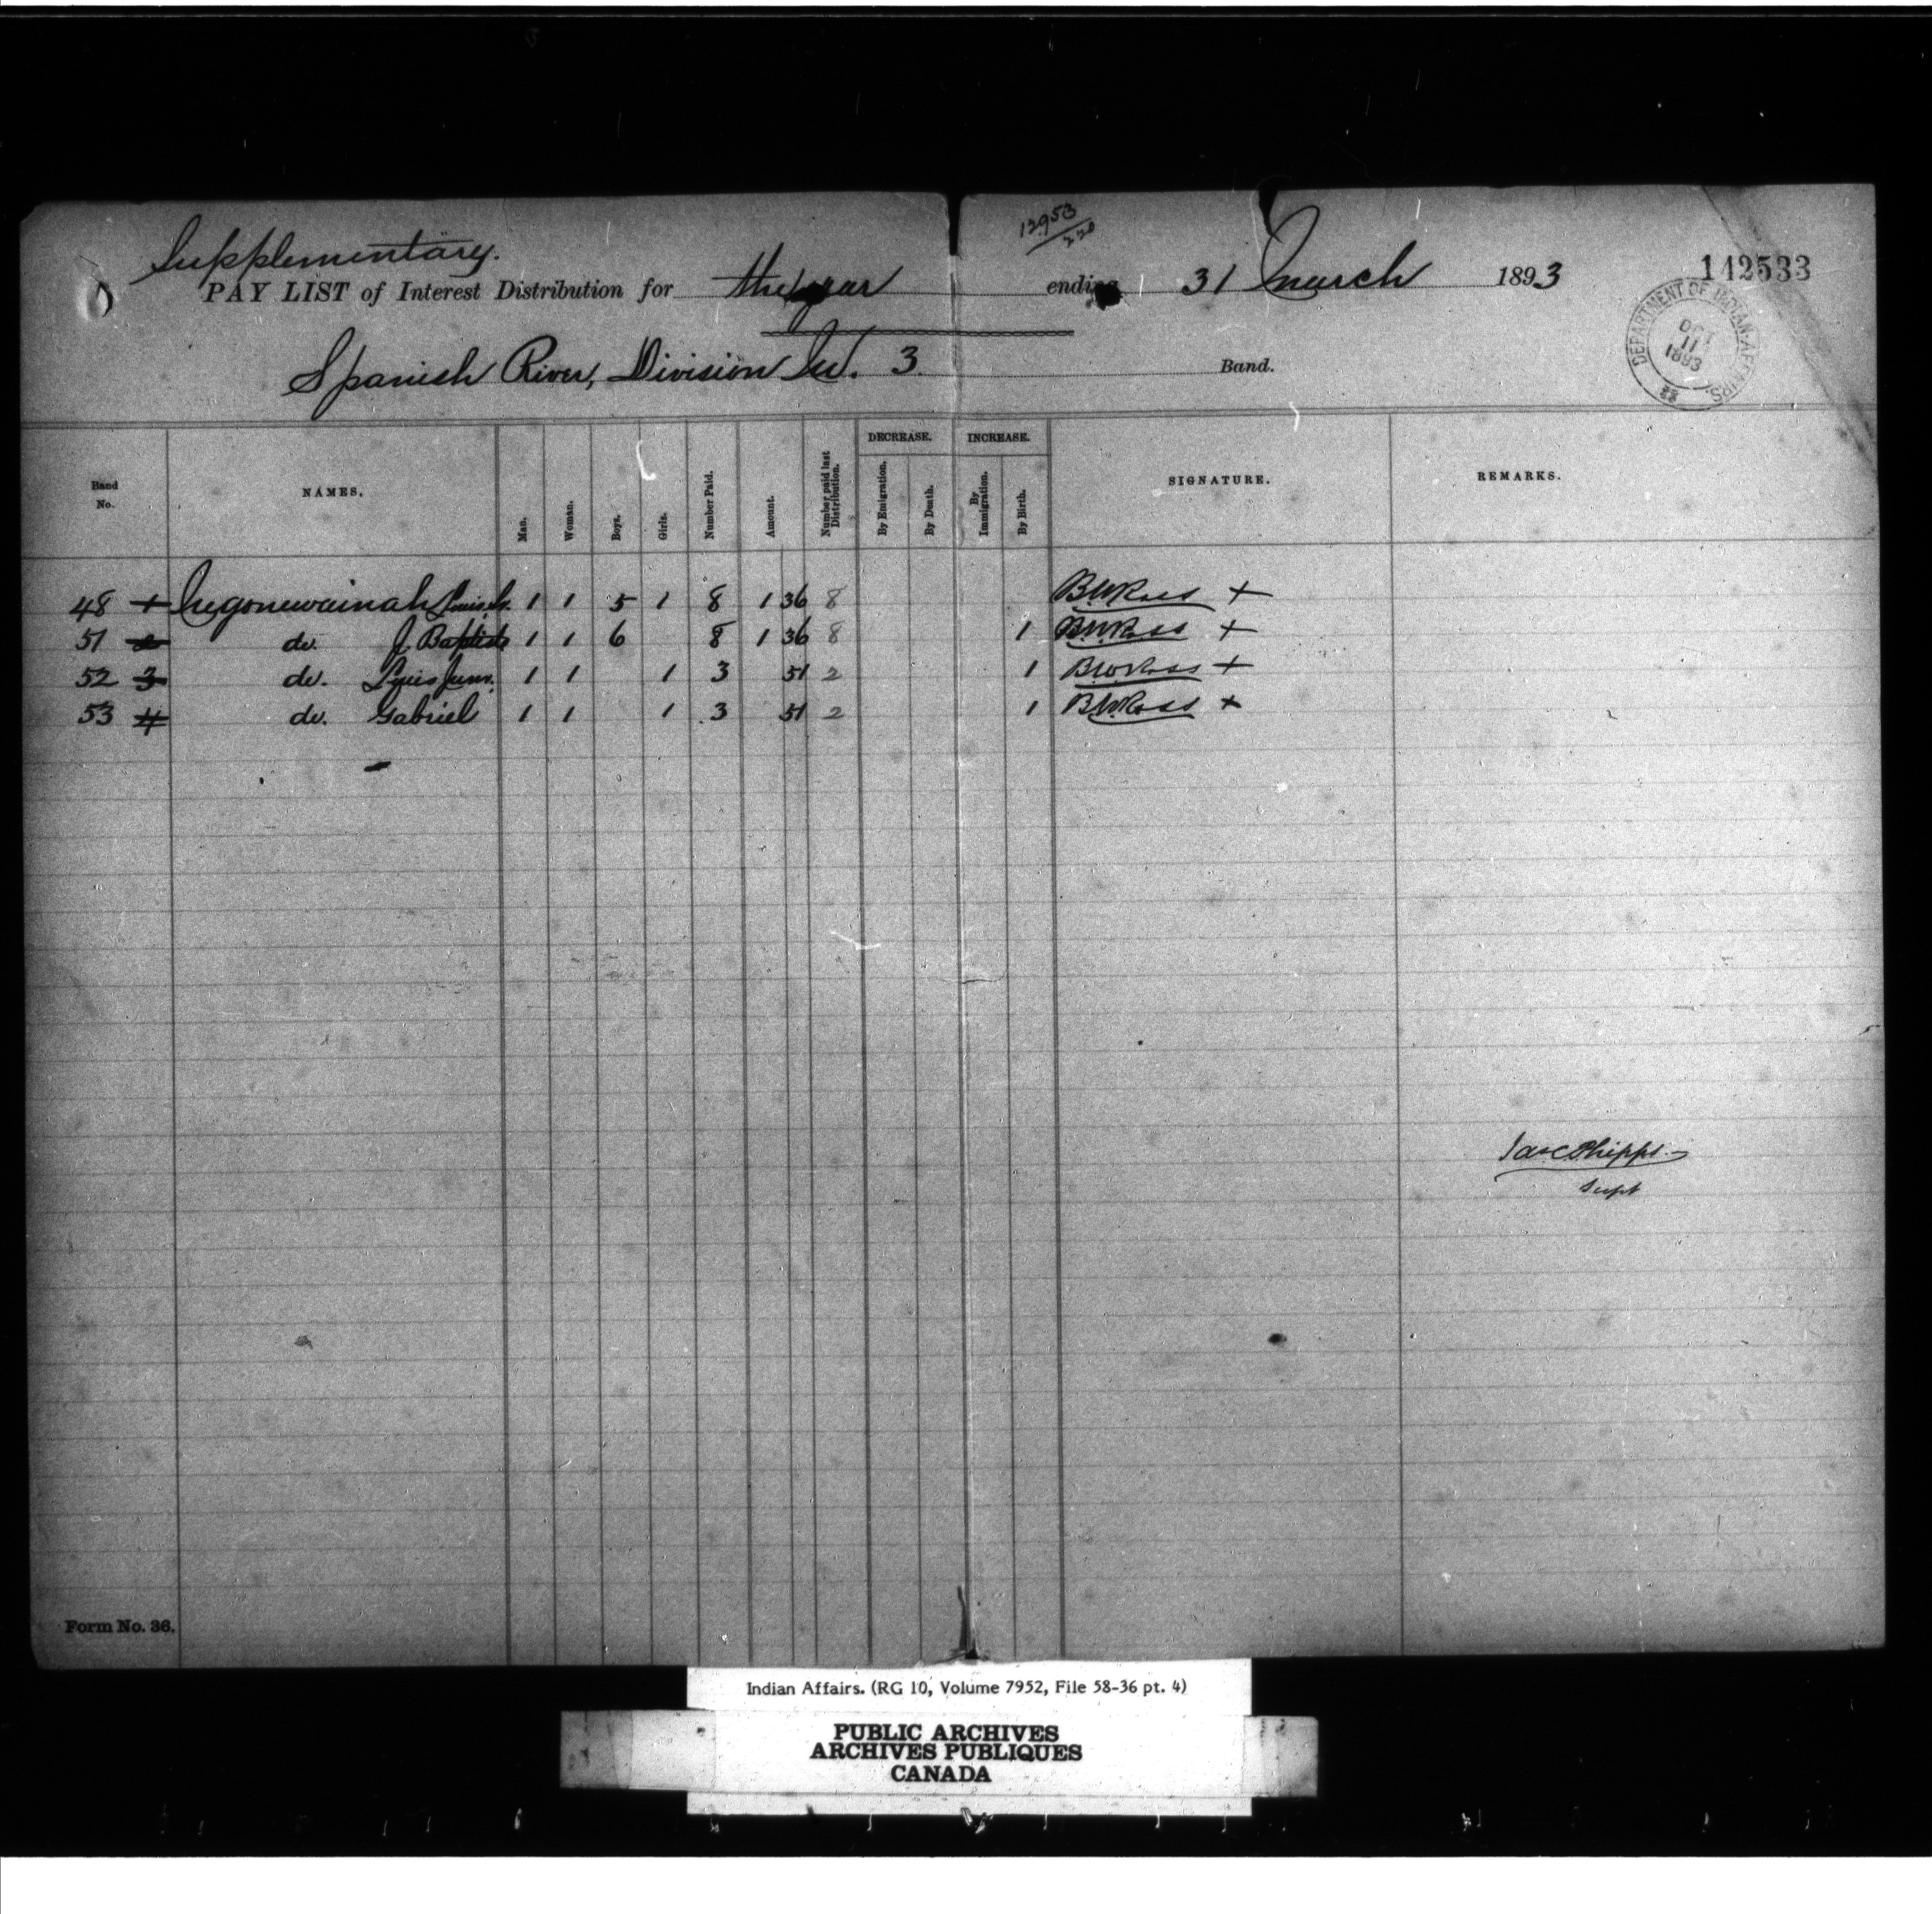 12953/220
Supplementary.
PAY LIST of Interest Distribution for the year ending 31 March 1893
142533
DEPARTMENT OF INDIAN AFFAIRS.
OCT
11
1893
Spanish River, Division No. 3 Band.
Band No. NAMES. Man. Woman. Boys. Girls. Number Paid. Amount. Number paid last Distribution. DECREASE. By Emigration. By Death. INCREASE. By Immigration. By Birth. SIGNATURE. REMARKS.
48 1 1 5 1 8 1 36 8 BWRoss +
51 2 do. J. Baptiste 1 1 6 8 1 36 8 1 BWRoss +
52 3 do. Louis Junr. 1 1 1 3 51 2 1 BWRoss +
53 4 do. Gabriel 1 1 1 3 51 2 1 BWRoss +
Jas C Phipps
Supt
Form No. 36.
Indian Affairs. (RG 10, Volume 7952, File 58-36 pt. 4)
PUBLIC ARCHIVES
ARCHIVES PUBLIQUES
CANADA